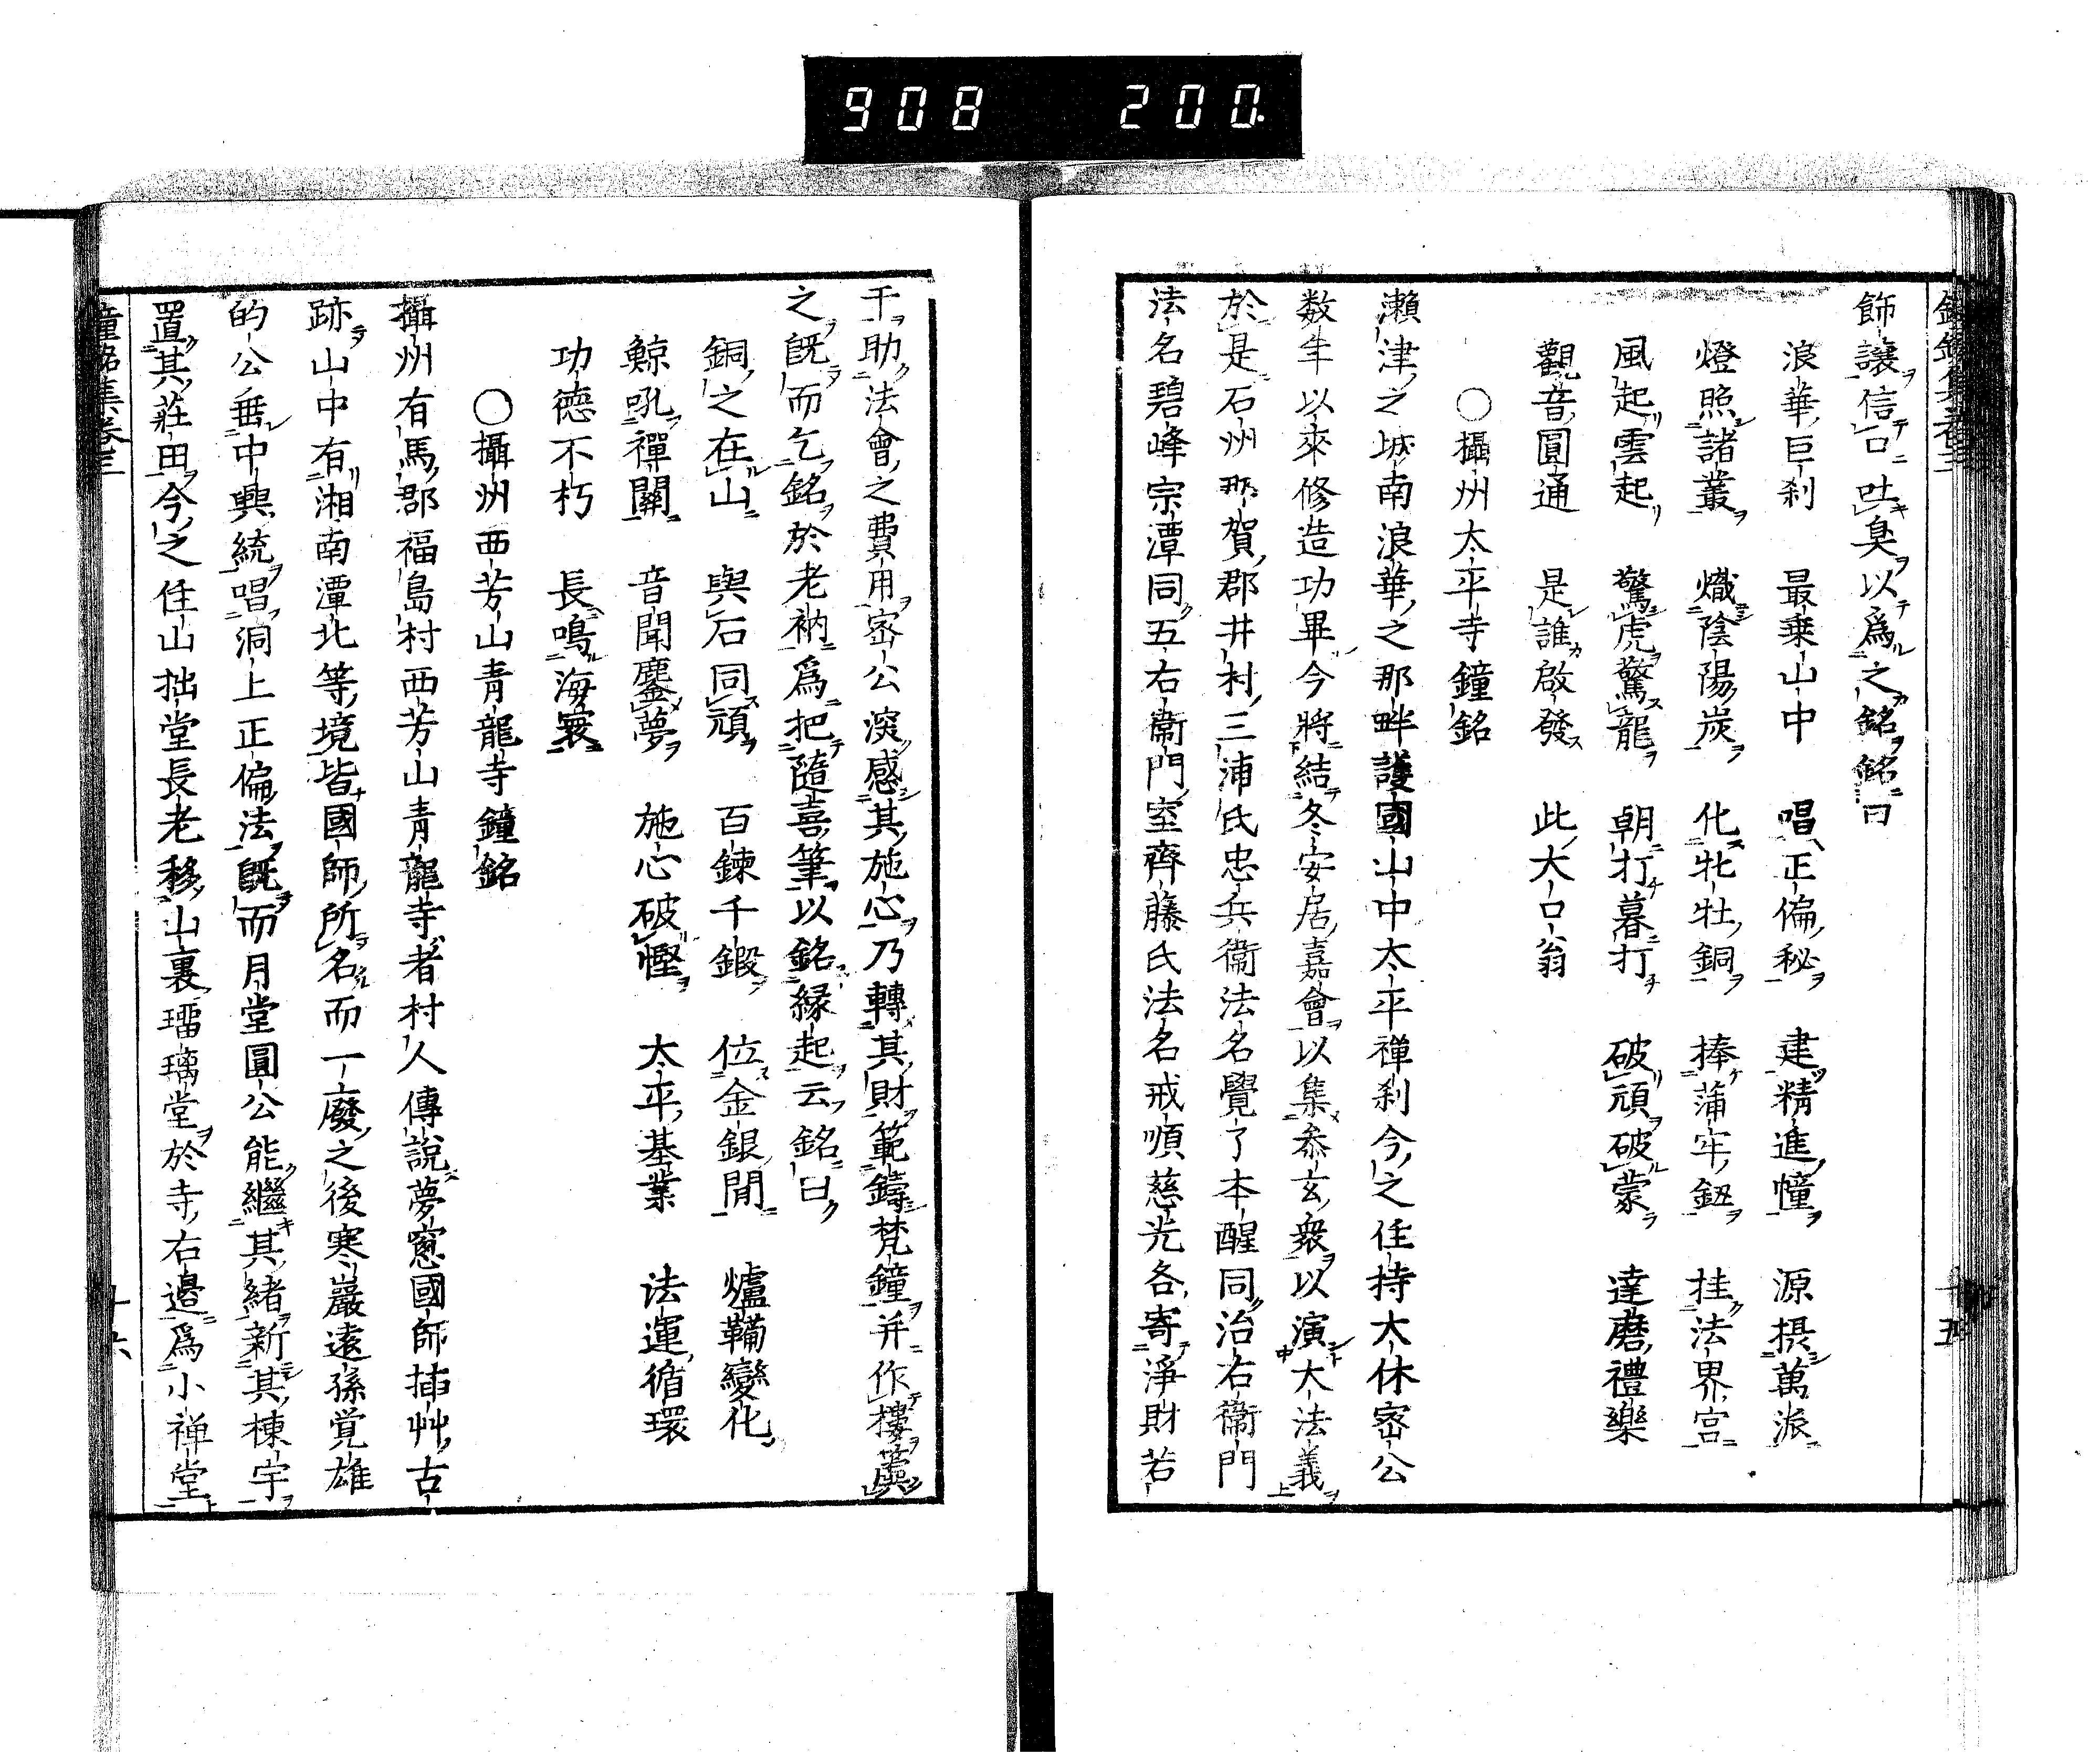 908 200
飾讓信口吐臭以爲之銘銘曰
浪華巨刹 最乗山中 唱正偏秘 建精進幢 源摂萬派
燈照諸叢 熾陰陽炭 化牝牡銅 捧蒲牢鈕 挂法界宮
風起雲起 驚虎驚龍 朝打暮打 破頑破蒙 達磨禮樂
觀音圓通 是誰啟發 此大口翁
○攝州太平寺鐘銘
瀬津之城南浪華之那畔護國山中太平禅刹今之住持大休宻公
数年以來修造功畢今將結冬安居嘉會以集叅玄衆以演大法義
於是石州那賀郡井村三浦氏忠兵衞法名覺了本醒同治右衞門
法名碧峰宗潭同五右衞門室齊藤氏法名戒順慈光各寄淨財若
干助法會之費用宻公深感其施心乃轉其財範鑄梵鐘并作樓簨
之既而乞銘於老衲爲把隨喜筆以銘縁起云銘曰
銅之在山 與石同頑 百鍊千鍛 位金銀間 爐鞴變化
鯨吼禪關 音聞鏖夢 施心破慳 太平基業 法運循環
功德不朽 長鳴海寰
○攝州西芳山青龍寺鐘銘
攝州有馬郡福島村西芳山青龍寺者村人傳說夢窓國師插艸古
跡山中有湘南潭北等境皆國師所名而一廢之後寒巖遠孫覚雄
的公垂中興統唱洞上正偏法既而月堂圓公能繼其緒新其棟宇
置其莊田今之住山拙堂長老移山裏瑠璃堂於寺右邉爲小禅堂
鐘銘集卷三
十六